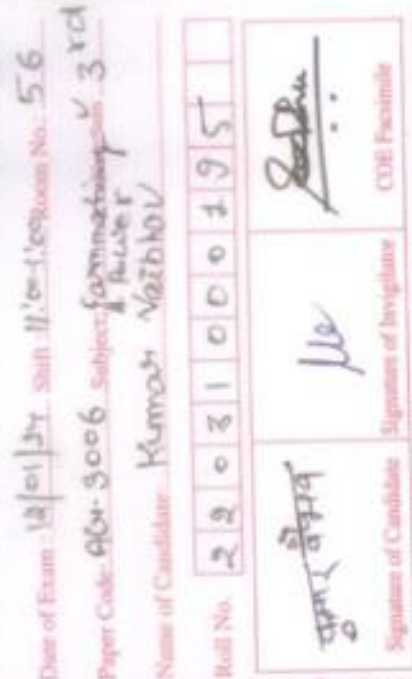 Date of Exam: 12/01/24 Shift: 11:00-1:00 Room No.: 56
Paper Code: AGH-3006 Subject: Farm machinery & Power 3rd
Name of Candidate Kumar Vaibhav
Roll No. 22031000195
कुमार वैभव
Signature of Candidate Signature of Invigilator COE Facsimile